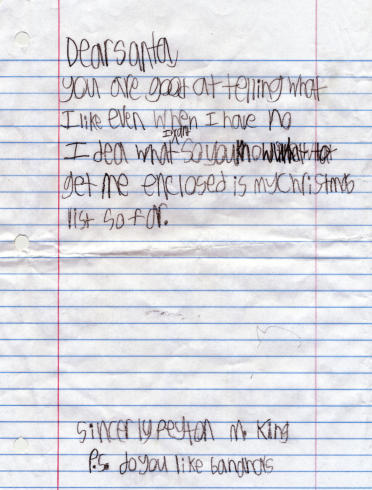 Dear santa
you are good at telling what
I like even when I have no
I dea what I want so you know what to
get me enclosed is my Christmas
list so far.
sincerly peyton m. King
P.S. do you like bananas